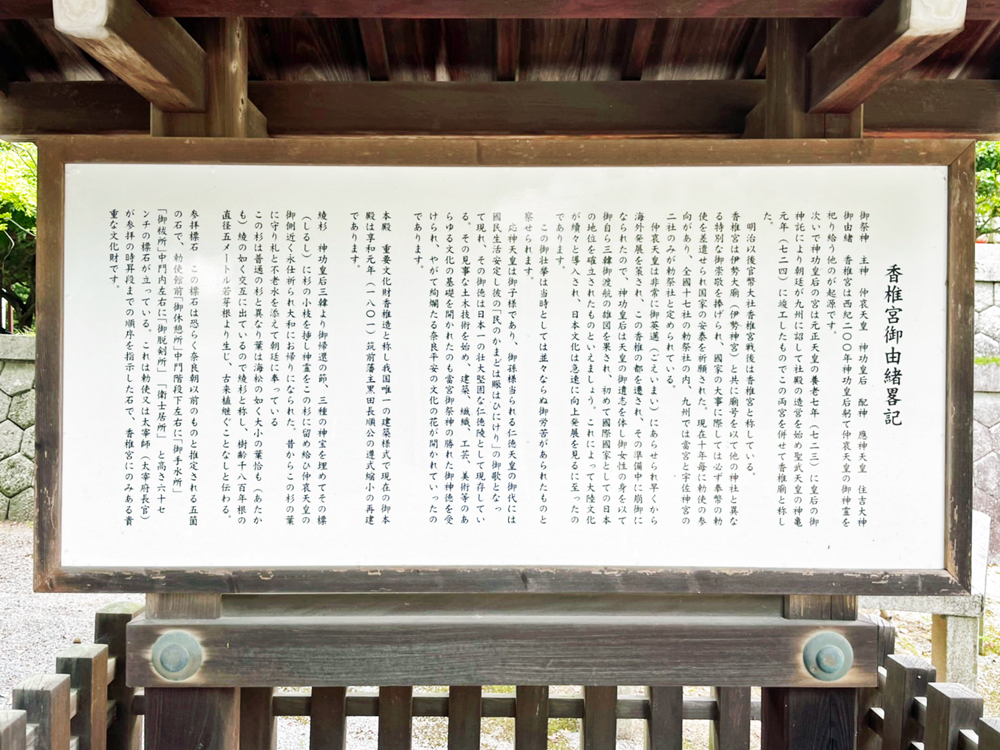 香椎宮御由緒畧記
御祭神　主神　仲哀天皇　神功皇后　配神　應神天皇　住吉大神
御由緒　香椎宮は西紀二〇〇年神功皇后躬て仲哀天皇の御神霊を
祀り給う他のが起源です。
次いで神功皇后の宮は元正天皇の養老七年（七二三）に皇后の御
神託により朝廷が九州に詔して社殿の造営を始め聖武天皇の神亀
元年（七二四）に竣工したものでこの両宮を併せて香椎廟と称し
た。
明治以後官幣大社香椎宮戦後は香椎宮と称しています。
香椎宮は伊勢大廟（伊勢神宮）と共に廟号を以て他の神社と異な
る特別な御崇敬を捧げられ、國家の大事に際しては必ず奉幣の勅
使を差遣せられ国家の安泰を祈願された。現在十年毎に勅使の参
向があり、全國十七社の勅祭社の内、九州では當宮と宇佐神宮の
二社のみが勅祭社と定められている。
仲哀天皇は非常に御英邁（ごえいまい）にあらせられ早くから
海外発展を策され、この香椎の都を遷され、その準備中に崩御に
なられたので、神功皇后は天皇の御遺志を体し御女性の身を以て
御自ら三韓御渡航の雄図を果され、初めて國際國家としての日本
の地位を確立されたものといえましょう。これによって大陸文化
が續々と導入され、日本文化は急速に向上発展を見るに至ったの
であります。
この御壮挙は当時としては並々ならぬ御労苦があられたものと
察せられます。
応神天皇は御子様であり、御孫様当られる仁徳天皇の御代には
國民生活安定し彼の「民のかまどは賑はひにけり」の御歌となっ
て現れ、その御徳は日本一の壮大堅固な仁徳陵として現存してい
る。その見事な土木技術を始め、建築、織機、工芸、美術等のあ
らゆる文化の基礎を開かれたのも當宮御祭神の勝れた御神徳を受
けられ、やがて絢爛たる奈良平安の文化の花が開かれていったの
であります。
本殿　重要文化財香椎造と称し我国唯一の建築様式で現在の御本
殿は享和元年（一八〇一）筑前藩主黒田長順公の遷式縮小の再建
であります。
綾杉　神功皇后三韓より御帰還の節、三種の神宝を埋めてその標
（しるし）に杉の小枝を挿し神霊をこの杉に留め給ひ仲哀天皇の
御側近く永仕祈られ大和にお帰りになられた。昔からこの杉の葉
に守り札と不老水を添えて朝廷に奉っている
この杉は普通の杉と異なり葉は海松の如く大小の葉恰も（あたか
も）綾の如く交互に出ているので綾杉と称し、樹齢千八百年根の
直径五メートル若芽根より生じ、古来植継ぐことなしと伝わる。
参拝標石　この標石は恐らく奈良朝以前のものと推定される五箇
の石で、勅使館前「御休憩所」中門階段下左右に「御手水所」
「御祓所」中門内左右に「御脱剣所」「衛士居所」と高さ六十セ
ンチの標石が立っている。これは勅使又は太宰師（太宰府長官）
が参拝の時昇段までの順序を指示した石で、香椎宮にのみある貴
重な文化財です。